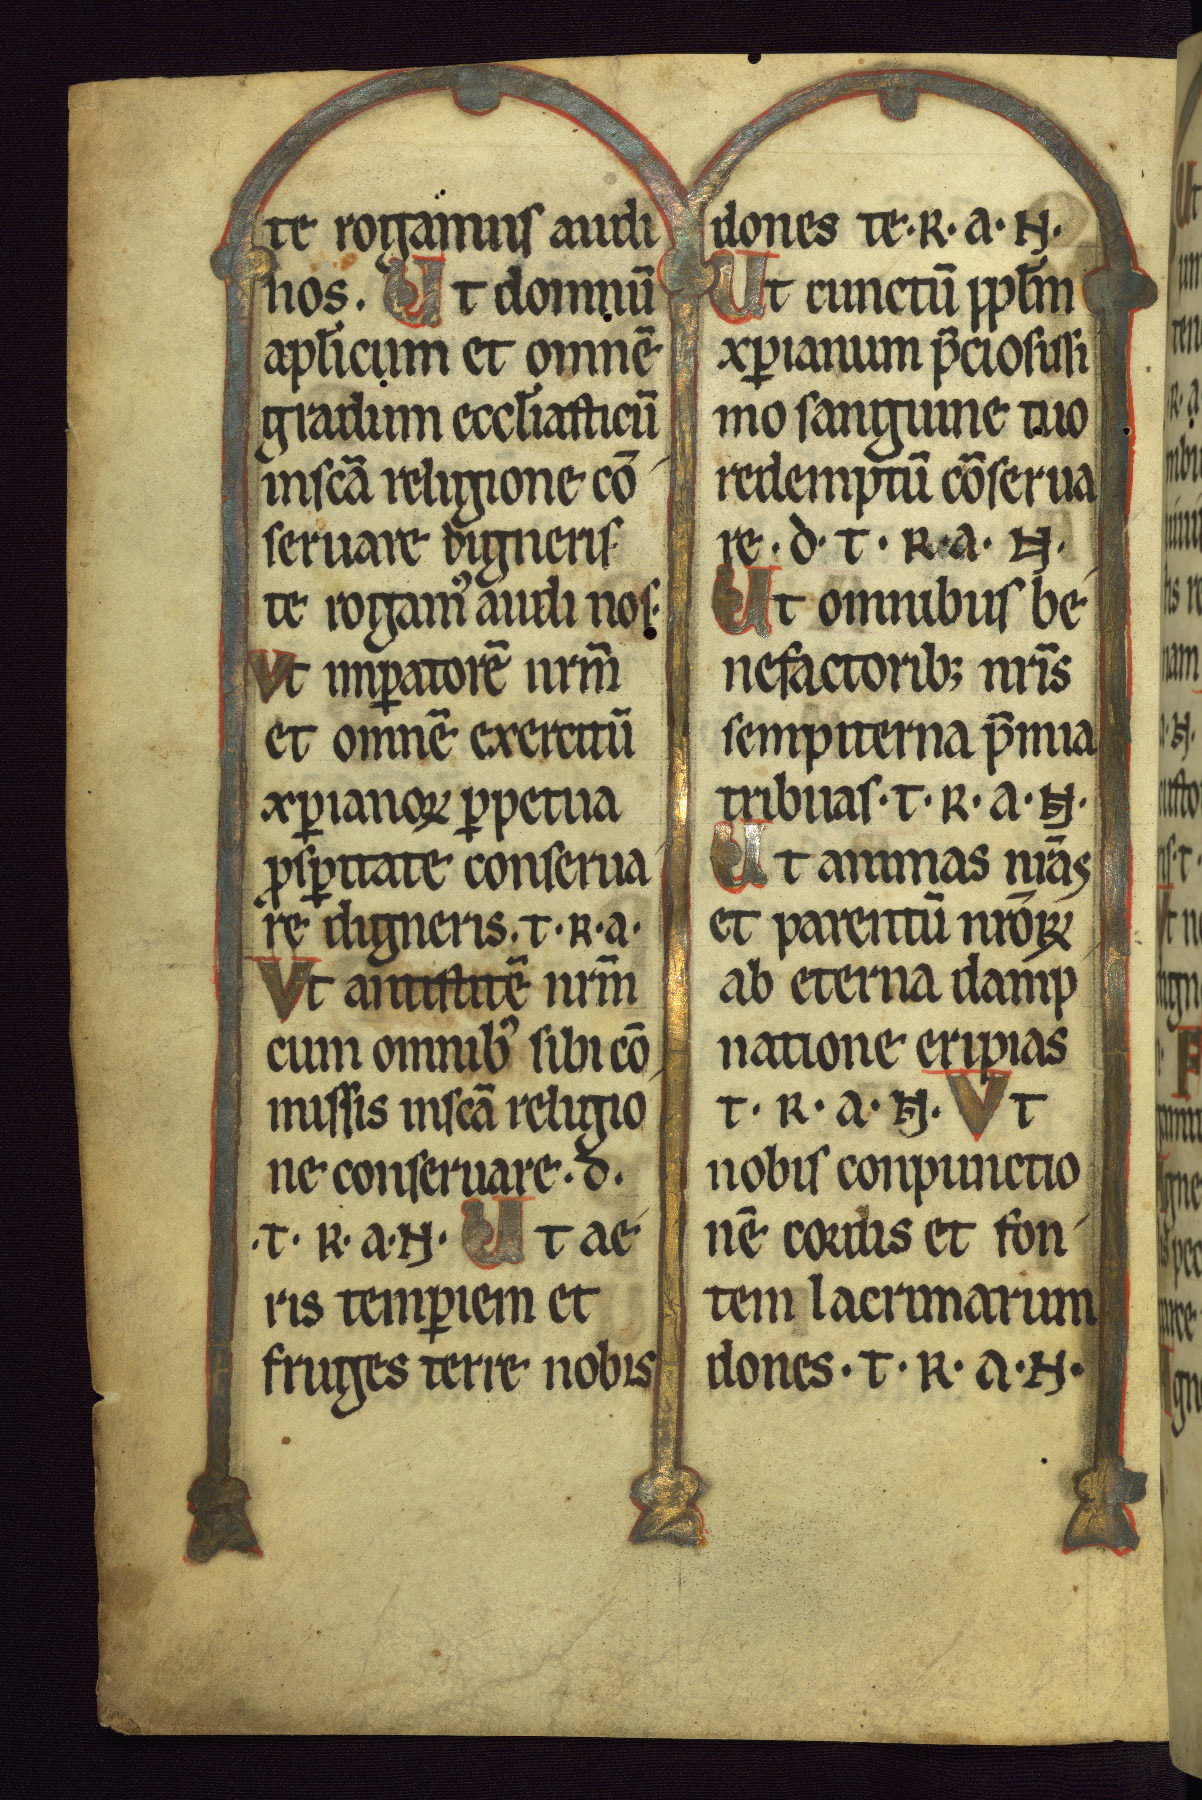 te rogamus audi
nos. Ut domnū
apl̄icum et omnē
gradum eccl̄iasticū
inscā religione cō
seruare digneris
te rogamꝰ audi nos.
Vt imꝑatorē nrm̄
et omnē exercitū
xꝑianoꝝ ꝑpetua
ꝓsꝑitate conserua
re digneris. T. R. A.
Vt antistitē nrm̄
cum omnibꝰ sibi cō
missis inscā religio
ne conseruare. D.
.T. R. A. N. Ut ae
ris temꝑiem et
fruges terre nobis
dones te. R. A. N.
Ut cunctū ppl̄m
xꝑianum p̄ciosissi
mo sanguine tuo
redemptū cōserua
re. D. T. R. A. N.
Ut omnibus be
nefactorib; nrīs
sempiterna p̄mia
tribuas. T. R. A. N.
Ut animas nrās
et parentū nrōꝝ
ab eterna damp
natione eripias
T. R. A. N. Vt
nobis conpunctio
nē cordis et fon
tem lacrimarum
dones. T. R. A. N.